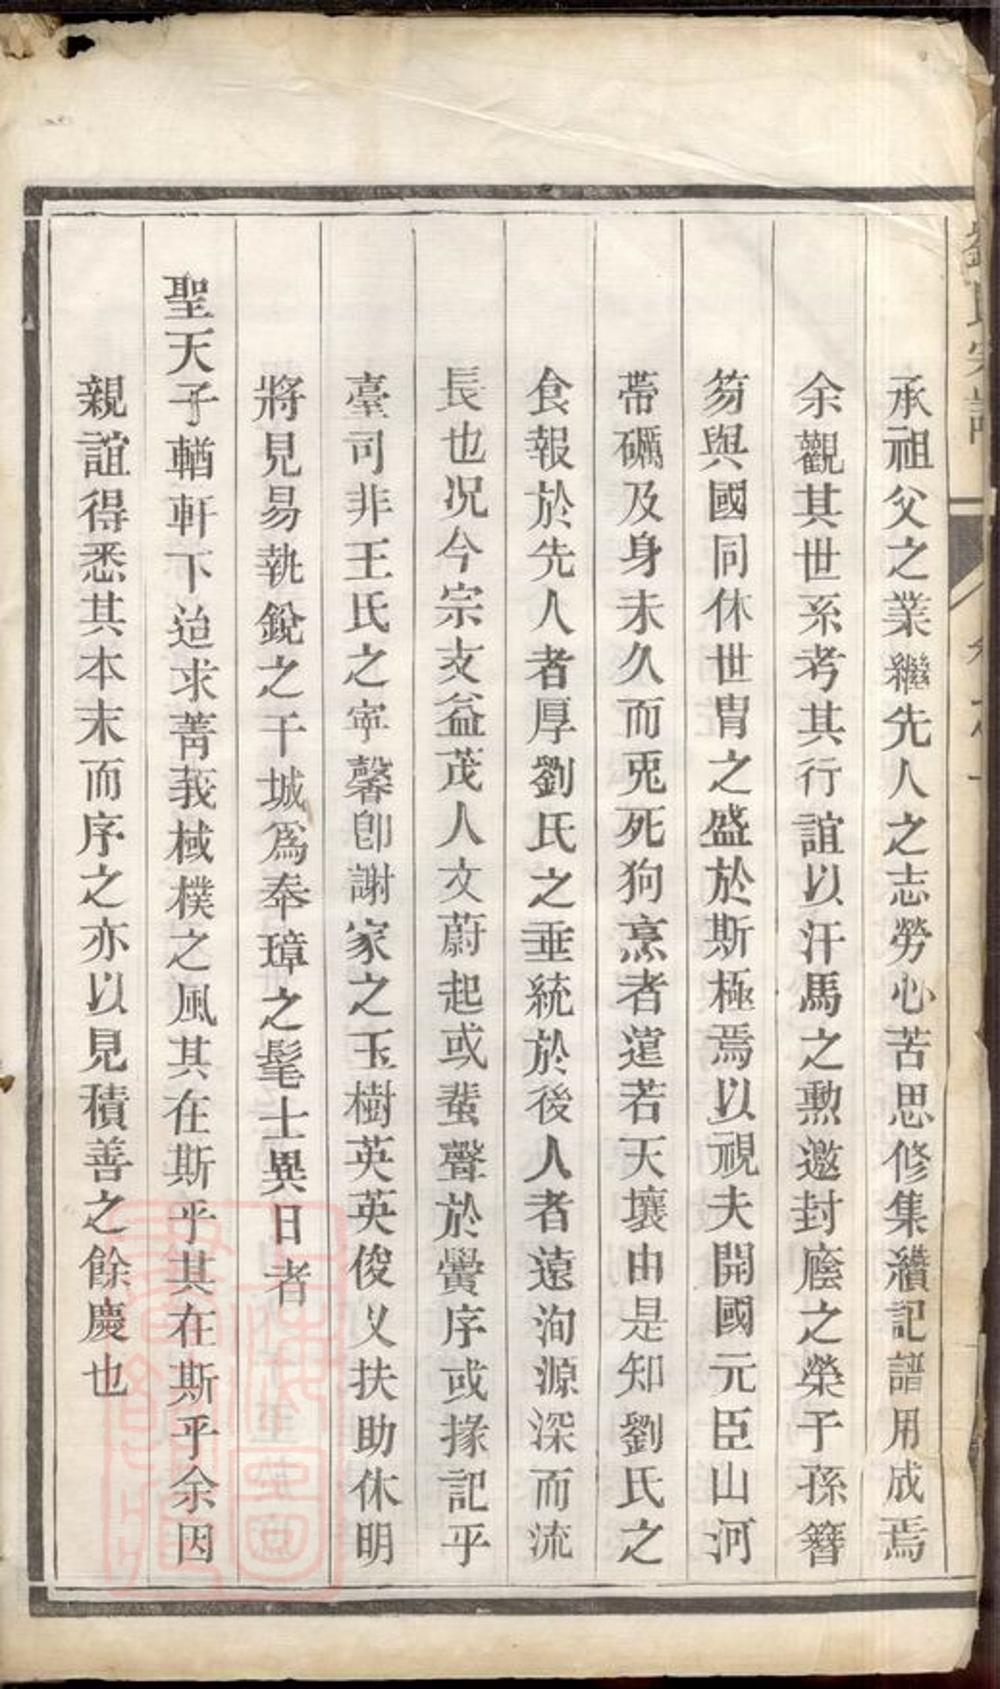 承祖父之業繼先人之志勞心苦思修集纘記譜用成焉
余觀其世系考其行誼以汗馬之勲邀封廕之榮子孫簪
笏與國同休世胄之盛於斯極焉以視夫開國元臣山河
帶礪及身未久而兎死狗烹者遑若天壤由是知劉氏之
食報於先人者厚劉氏之垂統於後人者遠洵源深而流
長也况今宗支益茂人文蔚起或蜚聲於黌序或掾記乎
臺司非王氏之寧馨卽謝家之玉樹英英俊乂扶助休明
將見易執銳之干城爲奉璋之髦士異日者
聖天子輶軒下逮求菁莪棫樸之風其在斯乎其在斯乎余因
親誼得悉其本末而序之亦以見積善之餘慶也
劉氏宗譜
卷之一
上海圖書館藏